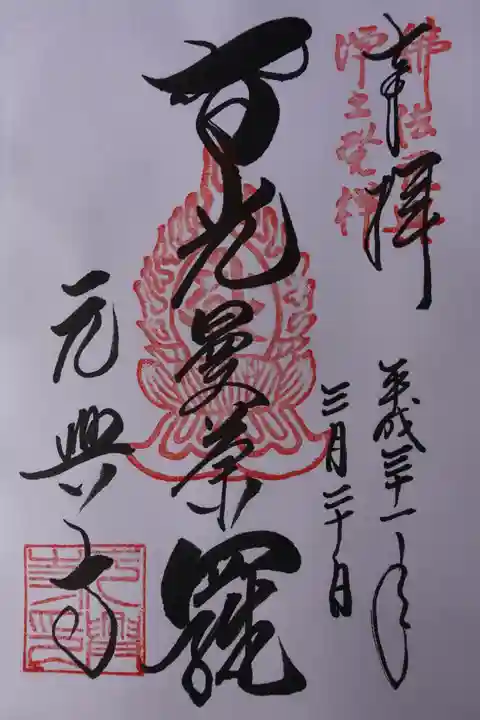 佛法元興
浄土發祥
奉拝
平成三十一年
三月二十日
智光曼荼羅
元興寺